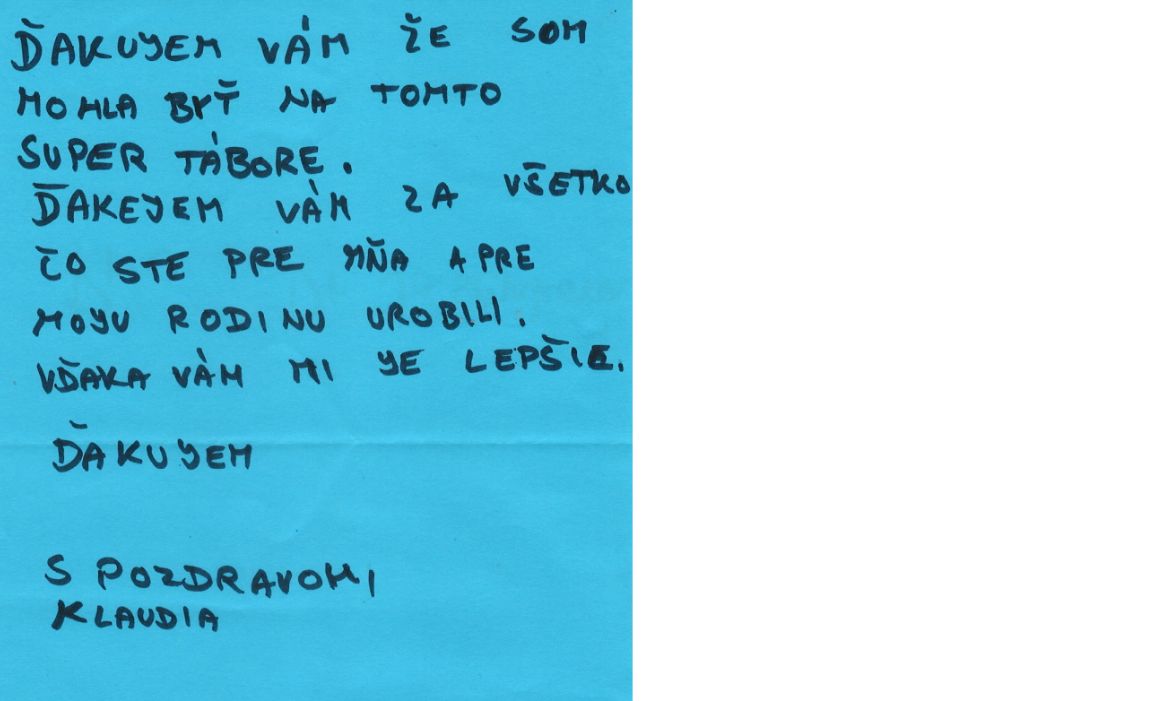 ĎAKUJEM VÁM ŽE SOM
MOHLA BYŤ NA TOMTO
SUPER TÁBORE.
ĎAKEJEM VÁM ZA VŠETKO
ČO STE PRE MŇA A PRE
MOJU RODINU UROBILI.
VĎAKA VÁM MI JE LEPŠIE.
ĎAKUJEM
S POZDRAVOM,
KLAUDIA